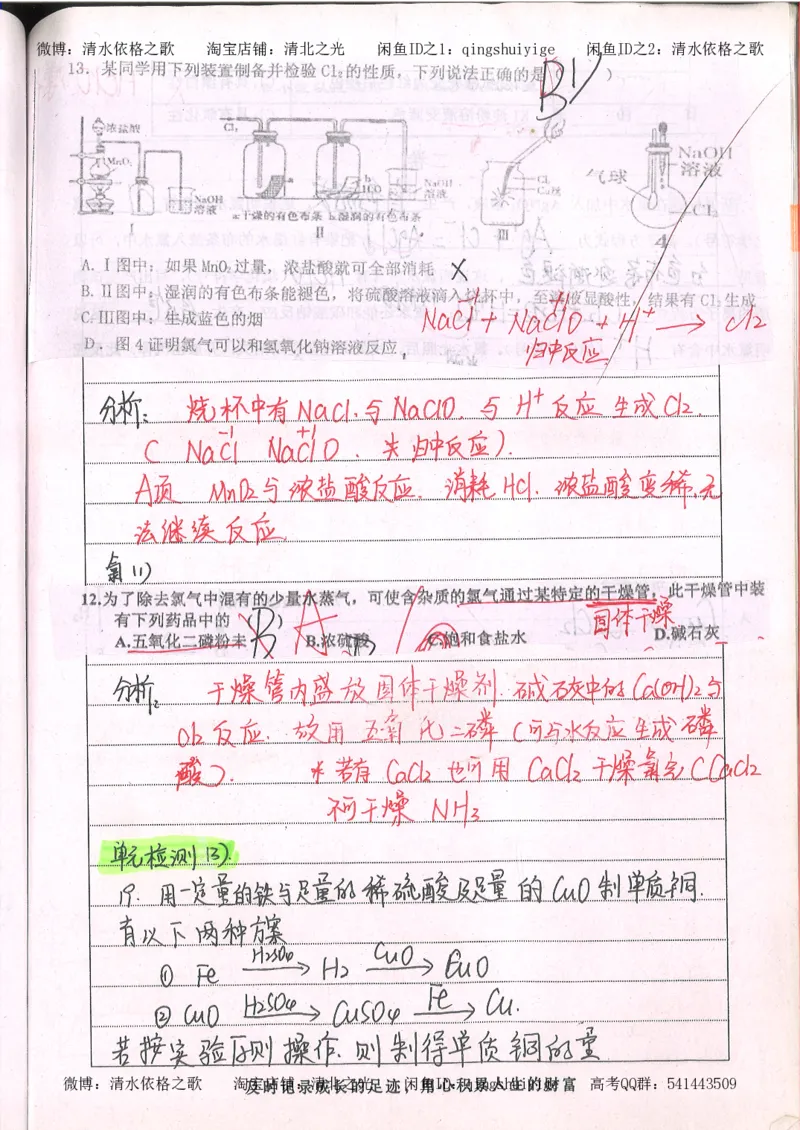 微博：清水依格之歌 淘宝店铺：清北之光 闲鱼ID之1：qingshuiyige 闲鱼ID之2：清水依格之歌
13. 某同学用下列装置制备并检验Cl₂的性质，下列说法正确的是（ ）
B
浓盐酸
MnO₂
NaOH溶液
Ⅰ
Cl₂
a b
H₂O
NaOH溶液
a干燥的有色布条 b湿润的有色布条
Ⅱ
Cl₂
Cu丝
Ⅲ
气球
NaOH溶液
Cl₂
4
A. Ⅰ图中：如果MnO₂过量，浓盐酸就可全部消耗 X
B. Ⅱ图中：湿润的有色布条能褪色，将硫酸溶液滴入烧杯中，至溶液显酸性，结果有Cl₂生成
C. Ⅲ图中：生成蓝色的烟
NaCl + NaClO + H⁺ → Cl₂
D. 图4证明氯气可以和氢氧化钠溶液反应，
归中反应
分析： 烧杯中有NaCl.与NaClO.与H⁺反应生成Cl₂.
( NaCl NaClO . 为归中反应).
-1 +1
A项 MnO₂与浓盐酸反应. 消耗HCl. 浓盐酸变稀.无
法继续反应.
氯(1)
12.为了除去氯气中混有的少量水蒸气，可使含杂质的氯气通过某特定的干燥管，此干燥管中装
有下列药品中的（ B ）
固体干燥
A.五氧化二磷粉末 B.浓硫酸 C.饱和食盐水 D.碱石灰
分析. 干燥管内盛放固体干燥剂.碱石灰中的Ca(OH)₂与
Cl₂反应. 故用五氧化二磷 (可与水反应生成磷
酸). *若有CaCl₂也可用CaCl₂干燥氯气 (CaCl₂
不可干燥NH₃
单元检测(3).
19. 用一定量的铁与足量的稀硫酸及足量的CuO制单质铜.
有以下两种方案
① Fe H₂SO₄→ H₂ CuO→ CuO
② CuO H₂SO₄→ CuSO₄ Fe→ Cu.
若按实验原则操作.则制得单质铜的量
微博：清水依格之歌 淘宝店铺：清北之光 闲鱼ID 高考QQ群：541443509
及时记录成长的足迹，用心积累人生的财富